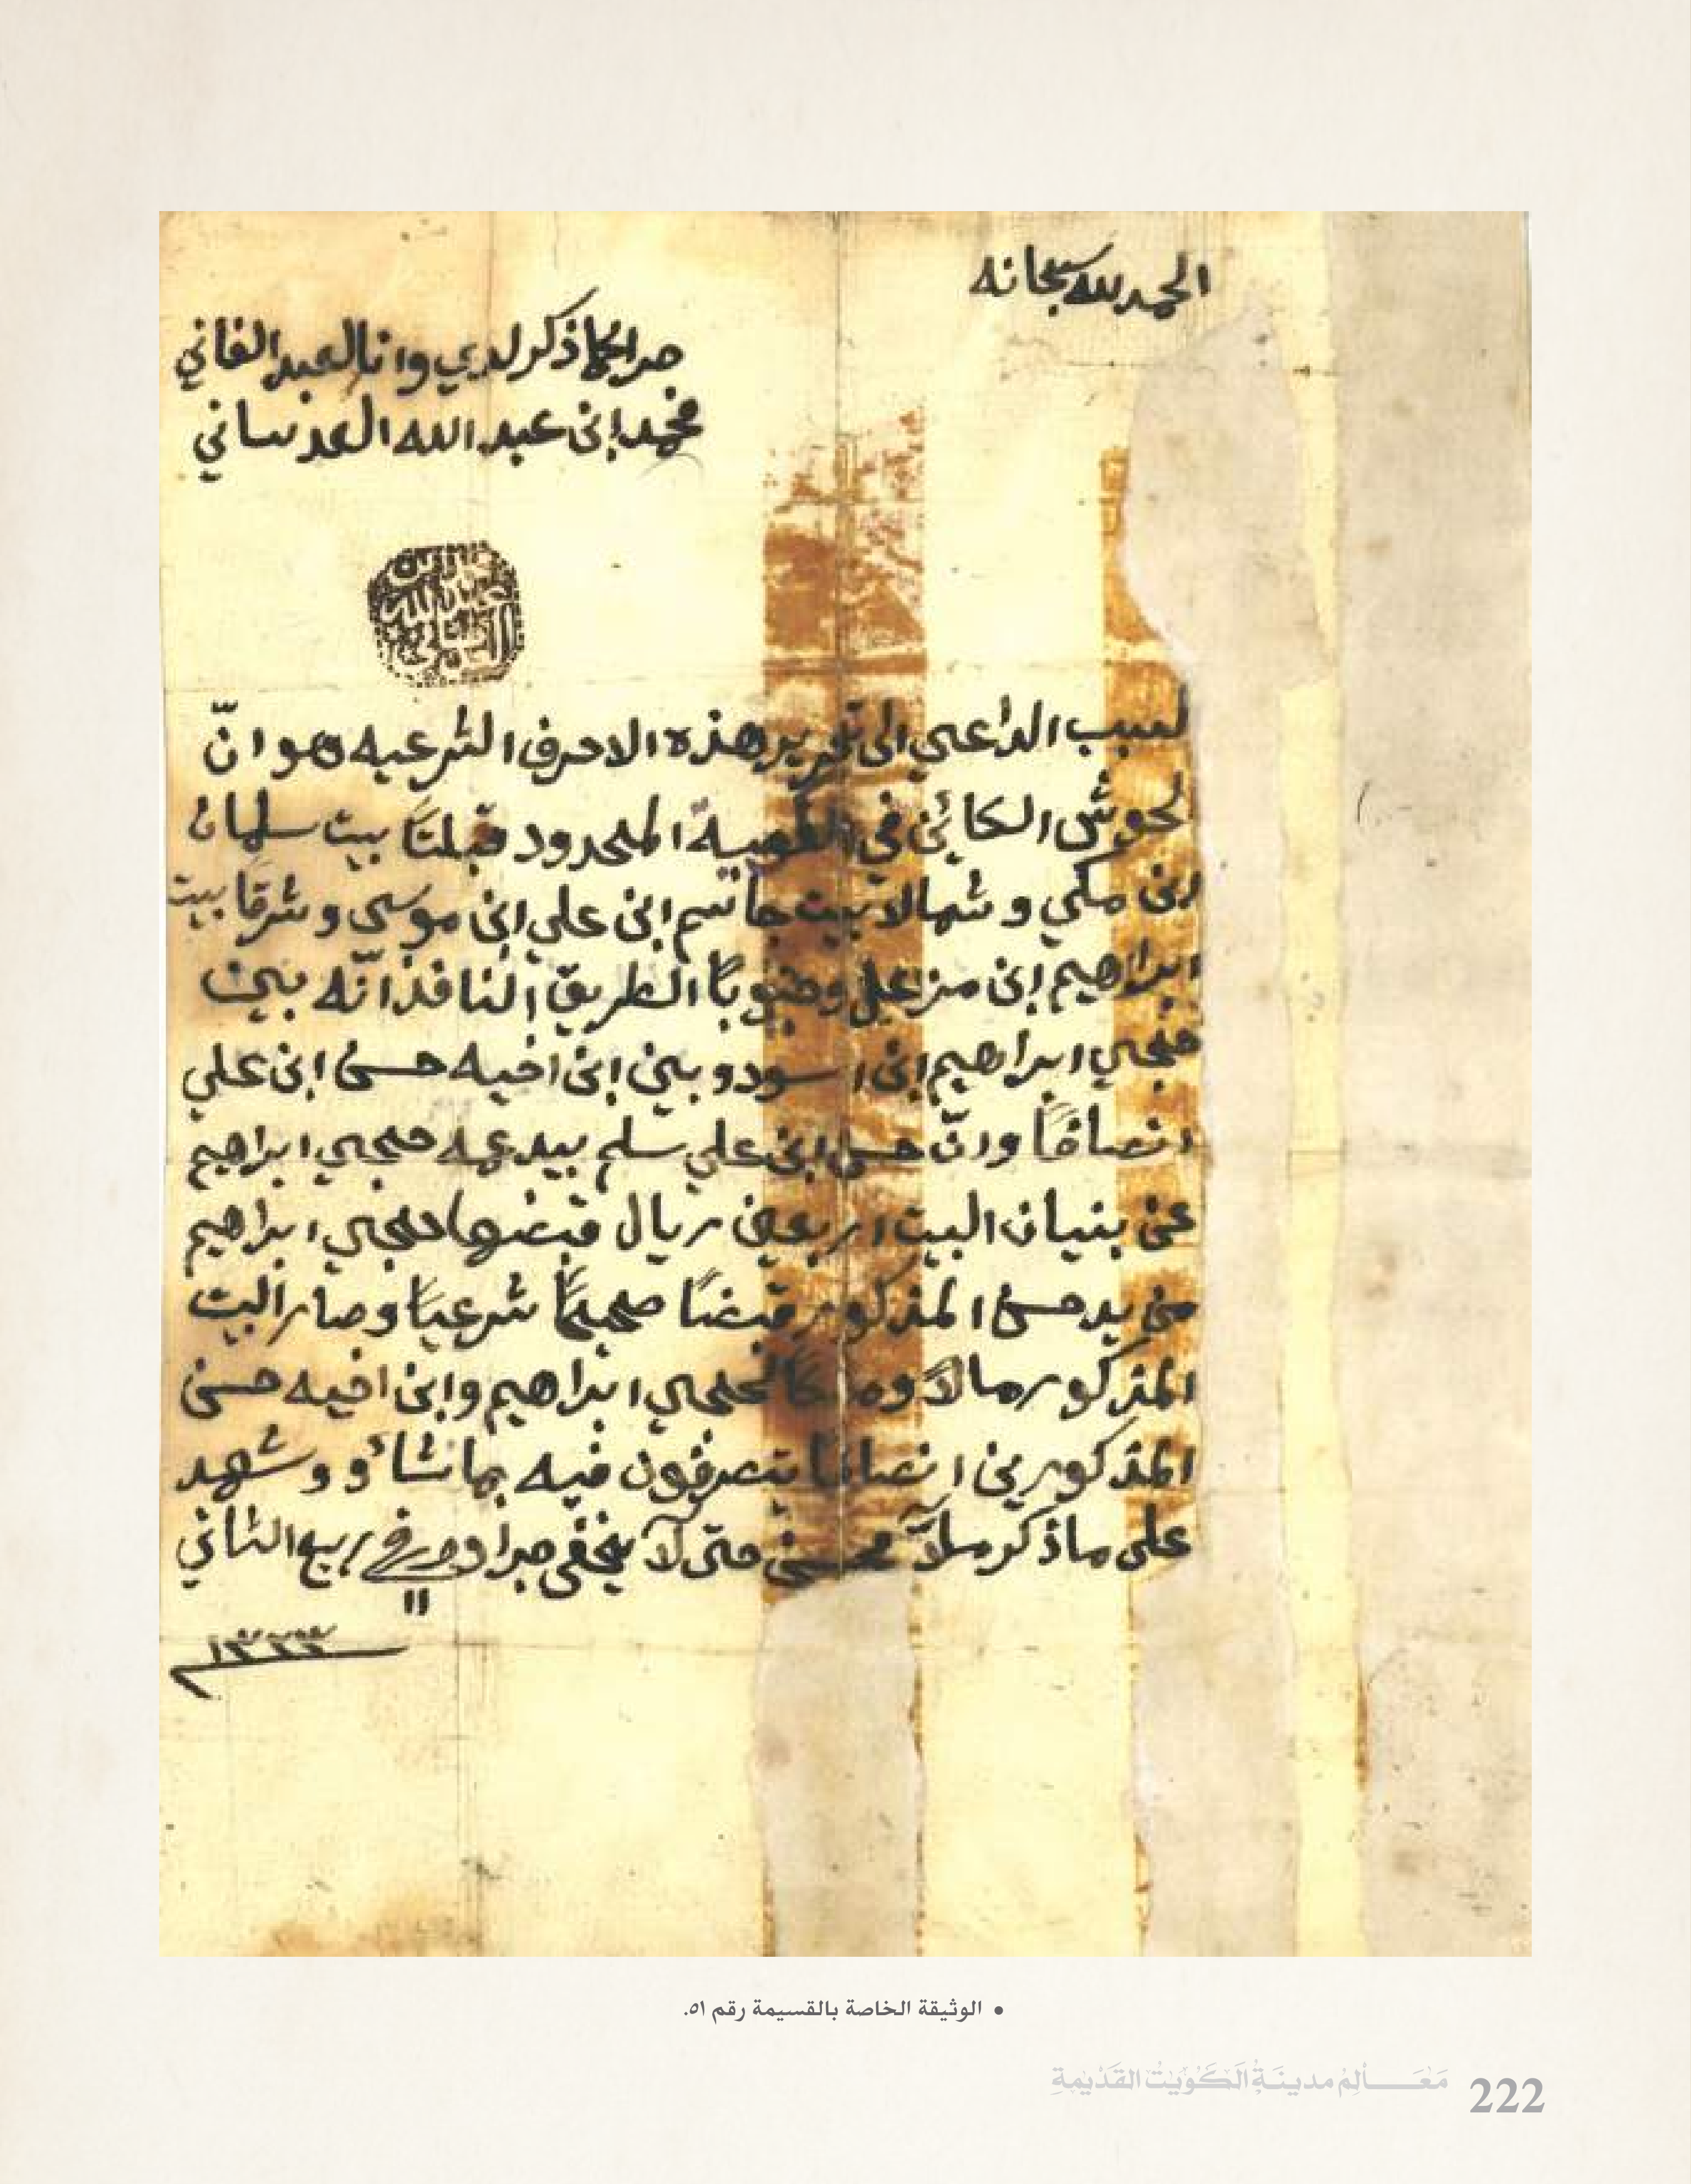 الحمد لله سبحانه
جرا كما ذكر لدي وانا العبد الفاني
محمد ابن عبد الله العدساني
عبد الله
لسبب الداعي الى تحرير هذه الاحرف الشرعيه هو انّ
لحوش الكائن في المحدود قبلتًا بيت سلمان
ابن مكي وشمالا بيت جاسم ابن علي ابن موسى وشرقًا بيت
ابراهيم ابن مزعل وجنوبًا الطريق النافذ انّه بين
حججي ابراهيم ابن اسود وبين ابن اخيه حسن ابن علي
انصافًا وانّ حسن ابن علي سلم بيد عمه حججي ابراهيم
عن بنيان البيت اربعين ريال قبضها حججي ابراهيم
من يد حسن المذكور قبضًا صحيحًا شرعيًا وصار البيت
المذكور مالاً وملكًا لحججي ابراهيم وابن اخيه حسن
المذكورين انصافًا يتصرفون فيه بما شاؤو وشهد
على ما ذكر ملاّ محسن حتى لا يخفى جرا وحرر في ربيع الثاني
١١
١٣٣٣
• الوثيقة الخاصة بالقسيمة رقم ٥١.
مَعَـــالِمُ مدينَةِ الكُوَيْتْ القَدْيمةِ 222